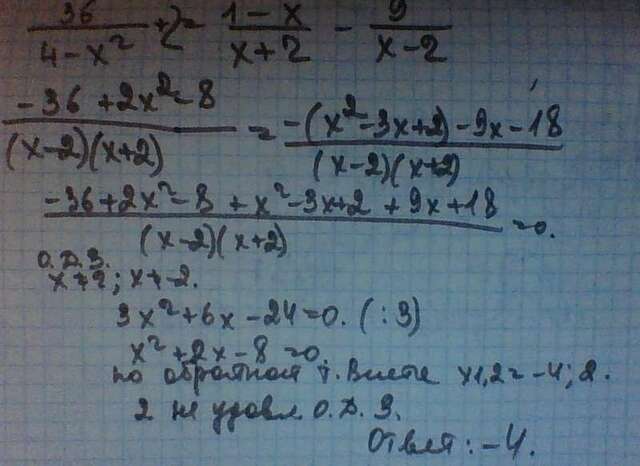 36/(4-x²) + 2 = (1-x)/(x+2) - 9/(x-2)
(-36+2x²-8)/((x-2)(x+2)) = (-(x²-3x+2)-9x-18)/((x-2)(x+2))
(-36+2x²-8+x²-3x+2+9x+18)/((x-2)(x+2)) = 0.
О.Д.З.
x≠2; x≠-2.
3x²+6x-24=0. (:3)
x²+2x-8=0.
по обратной т. Виета x1,2=-4; 2.
2 не удовл. О.Д.З.
Ответ: -4.